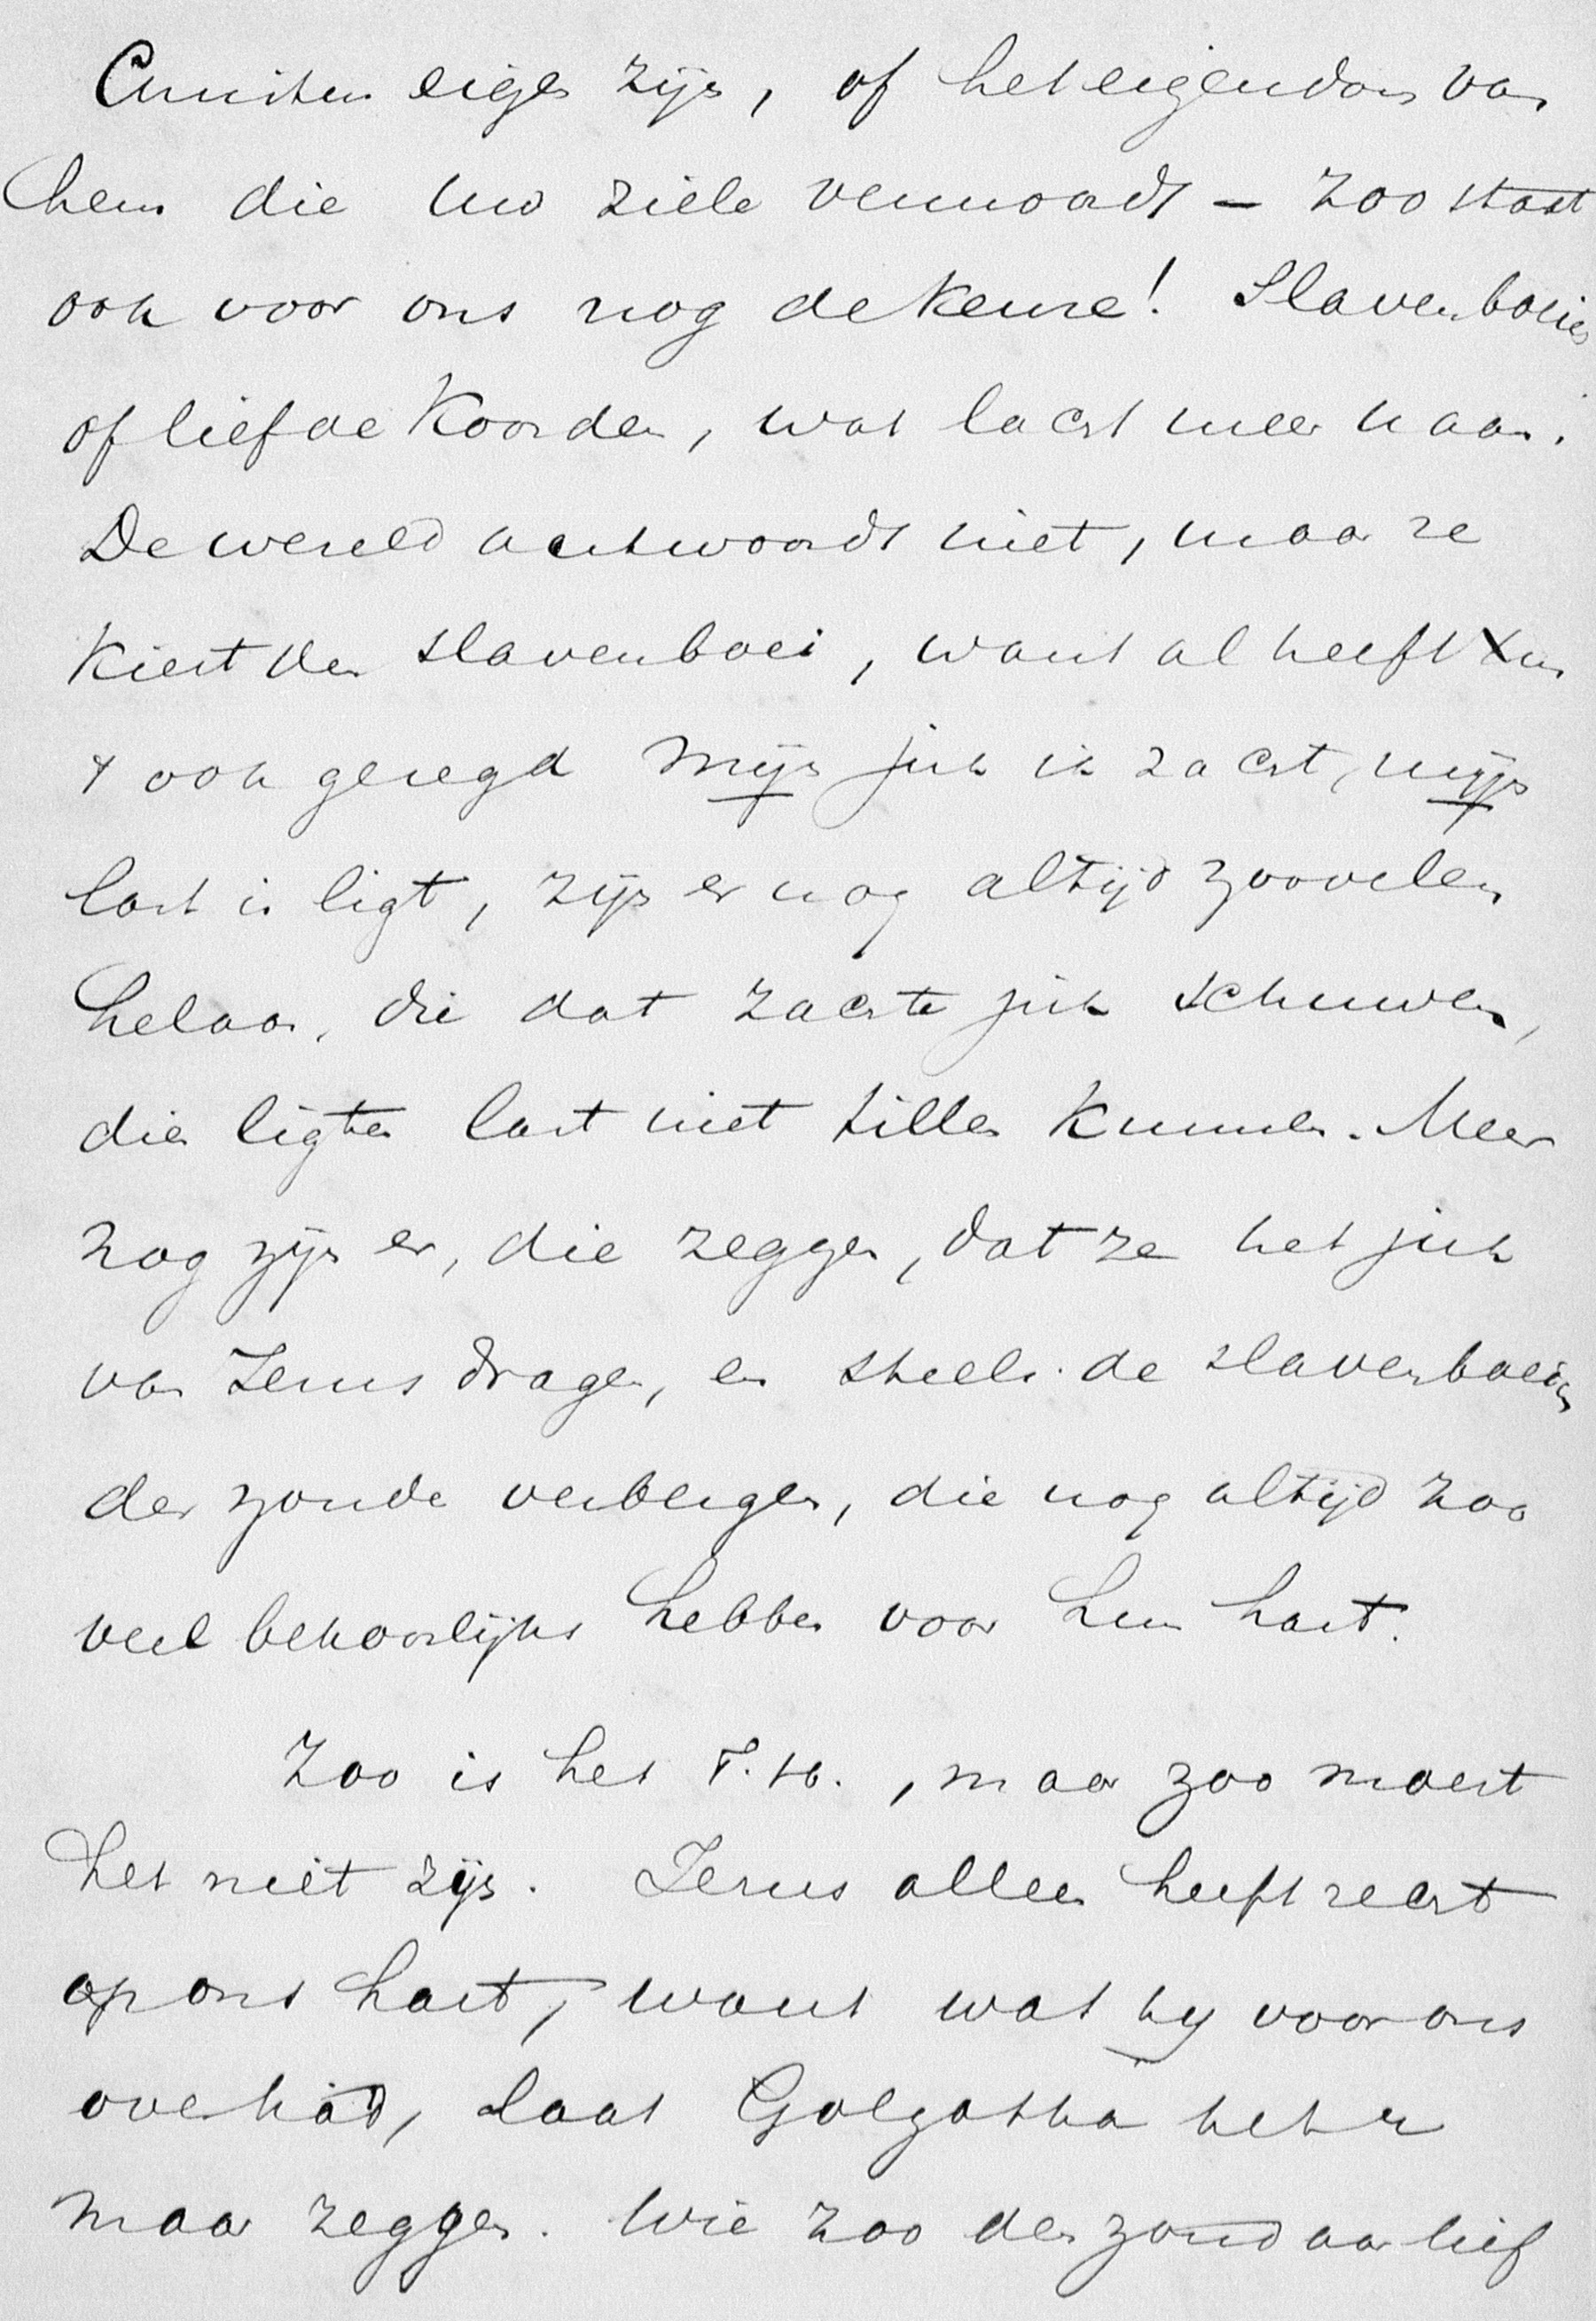 Christen eigen zijn, of het eigendom van
hem die uw ziele vermoordt – zoo staat
ook voor ons nog de keuze! Slavenboeien
of liefde koorden, wat lacht meer u aan.
De wereld antwoordt niet, maar ze
kiest den slavenboei, want al heeft Xus
't ook gezegd mijn juk is zacht, mijn
last is ligt, zijn er nog altijd zoovelen
helaas, die dat zachte juk schuwen,
dien ligten last niet tillen kunnen. Meer
nog zijn er, die zeggen, dat ze het juk
van Jezus dragen, en steels de slavenboeien
der zonde verbergen, die nog altijd zoo
veel bekoorlijks hebben voor hun hart.
Zoo is het T. H., maar zoo moest
het niet zijn. Jezus alleen heeft recht
op ons hart, want wat hij voor ons
overhad, laat Golgotha het u
maar zeggen. Wie zoo den zondaar lief